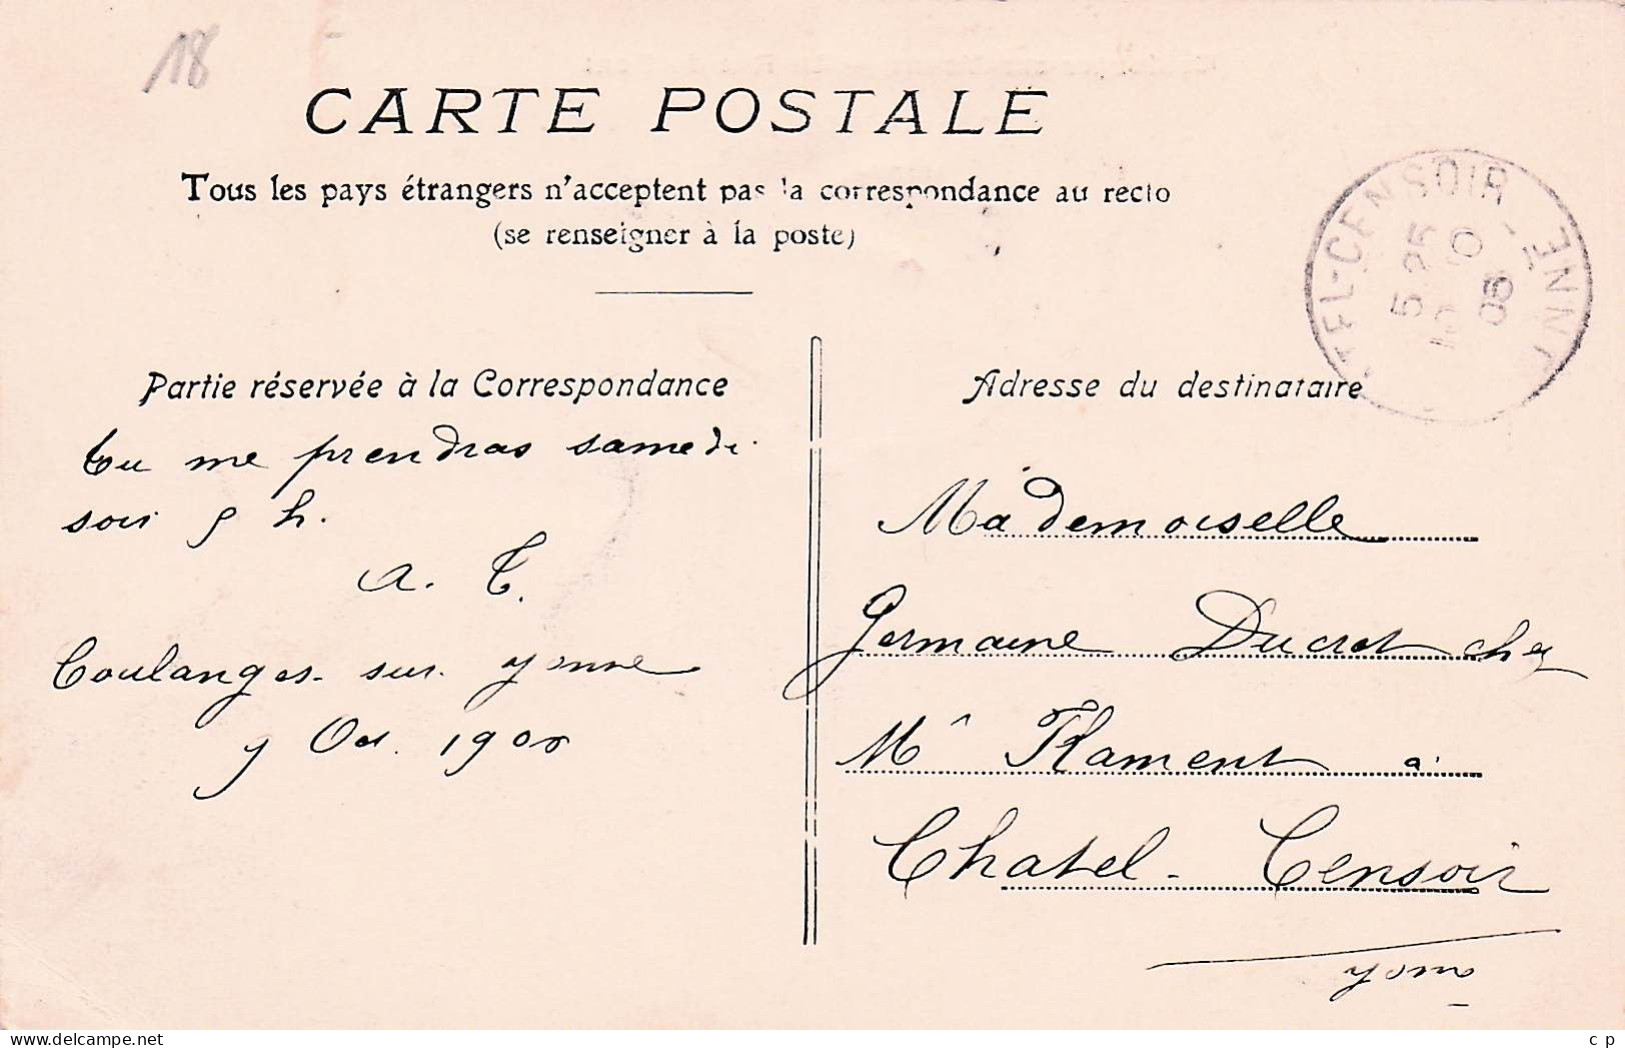 18
CARTE POSTALE
Tous les pays étrangers n'acceptent pas la correspondance au recto
(se renseigner à la poste)
TEL-CENSOIR - YONNE
5 25
10 10
05
Partie réservée à la Correspondance
Tu me prendras samedi
soir 5 h.
A. T.
Coulanges-sur-Yonne
9 Oct. 1905
Adresse du destinataire
Mademoiselle
Germaine Ducrot chez
Mr Flament à
Chatel-Censoir
Yonne
c p
www.delcampe.net